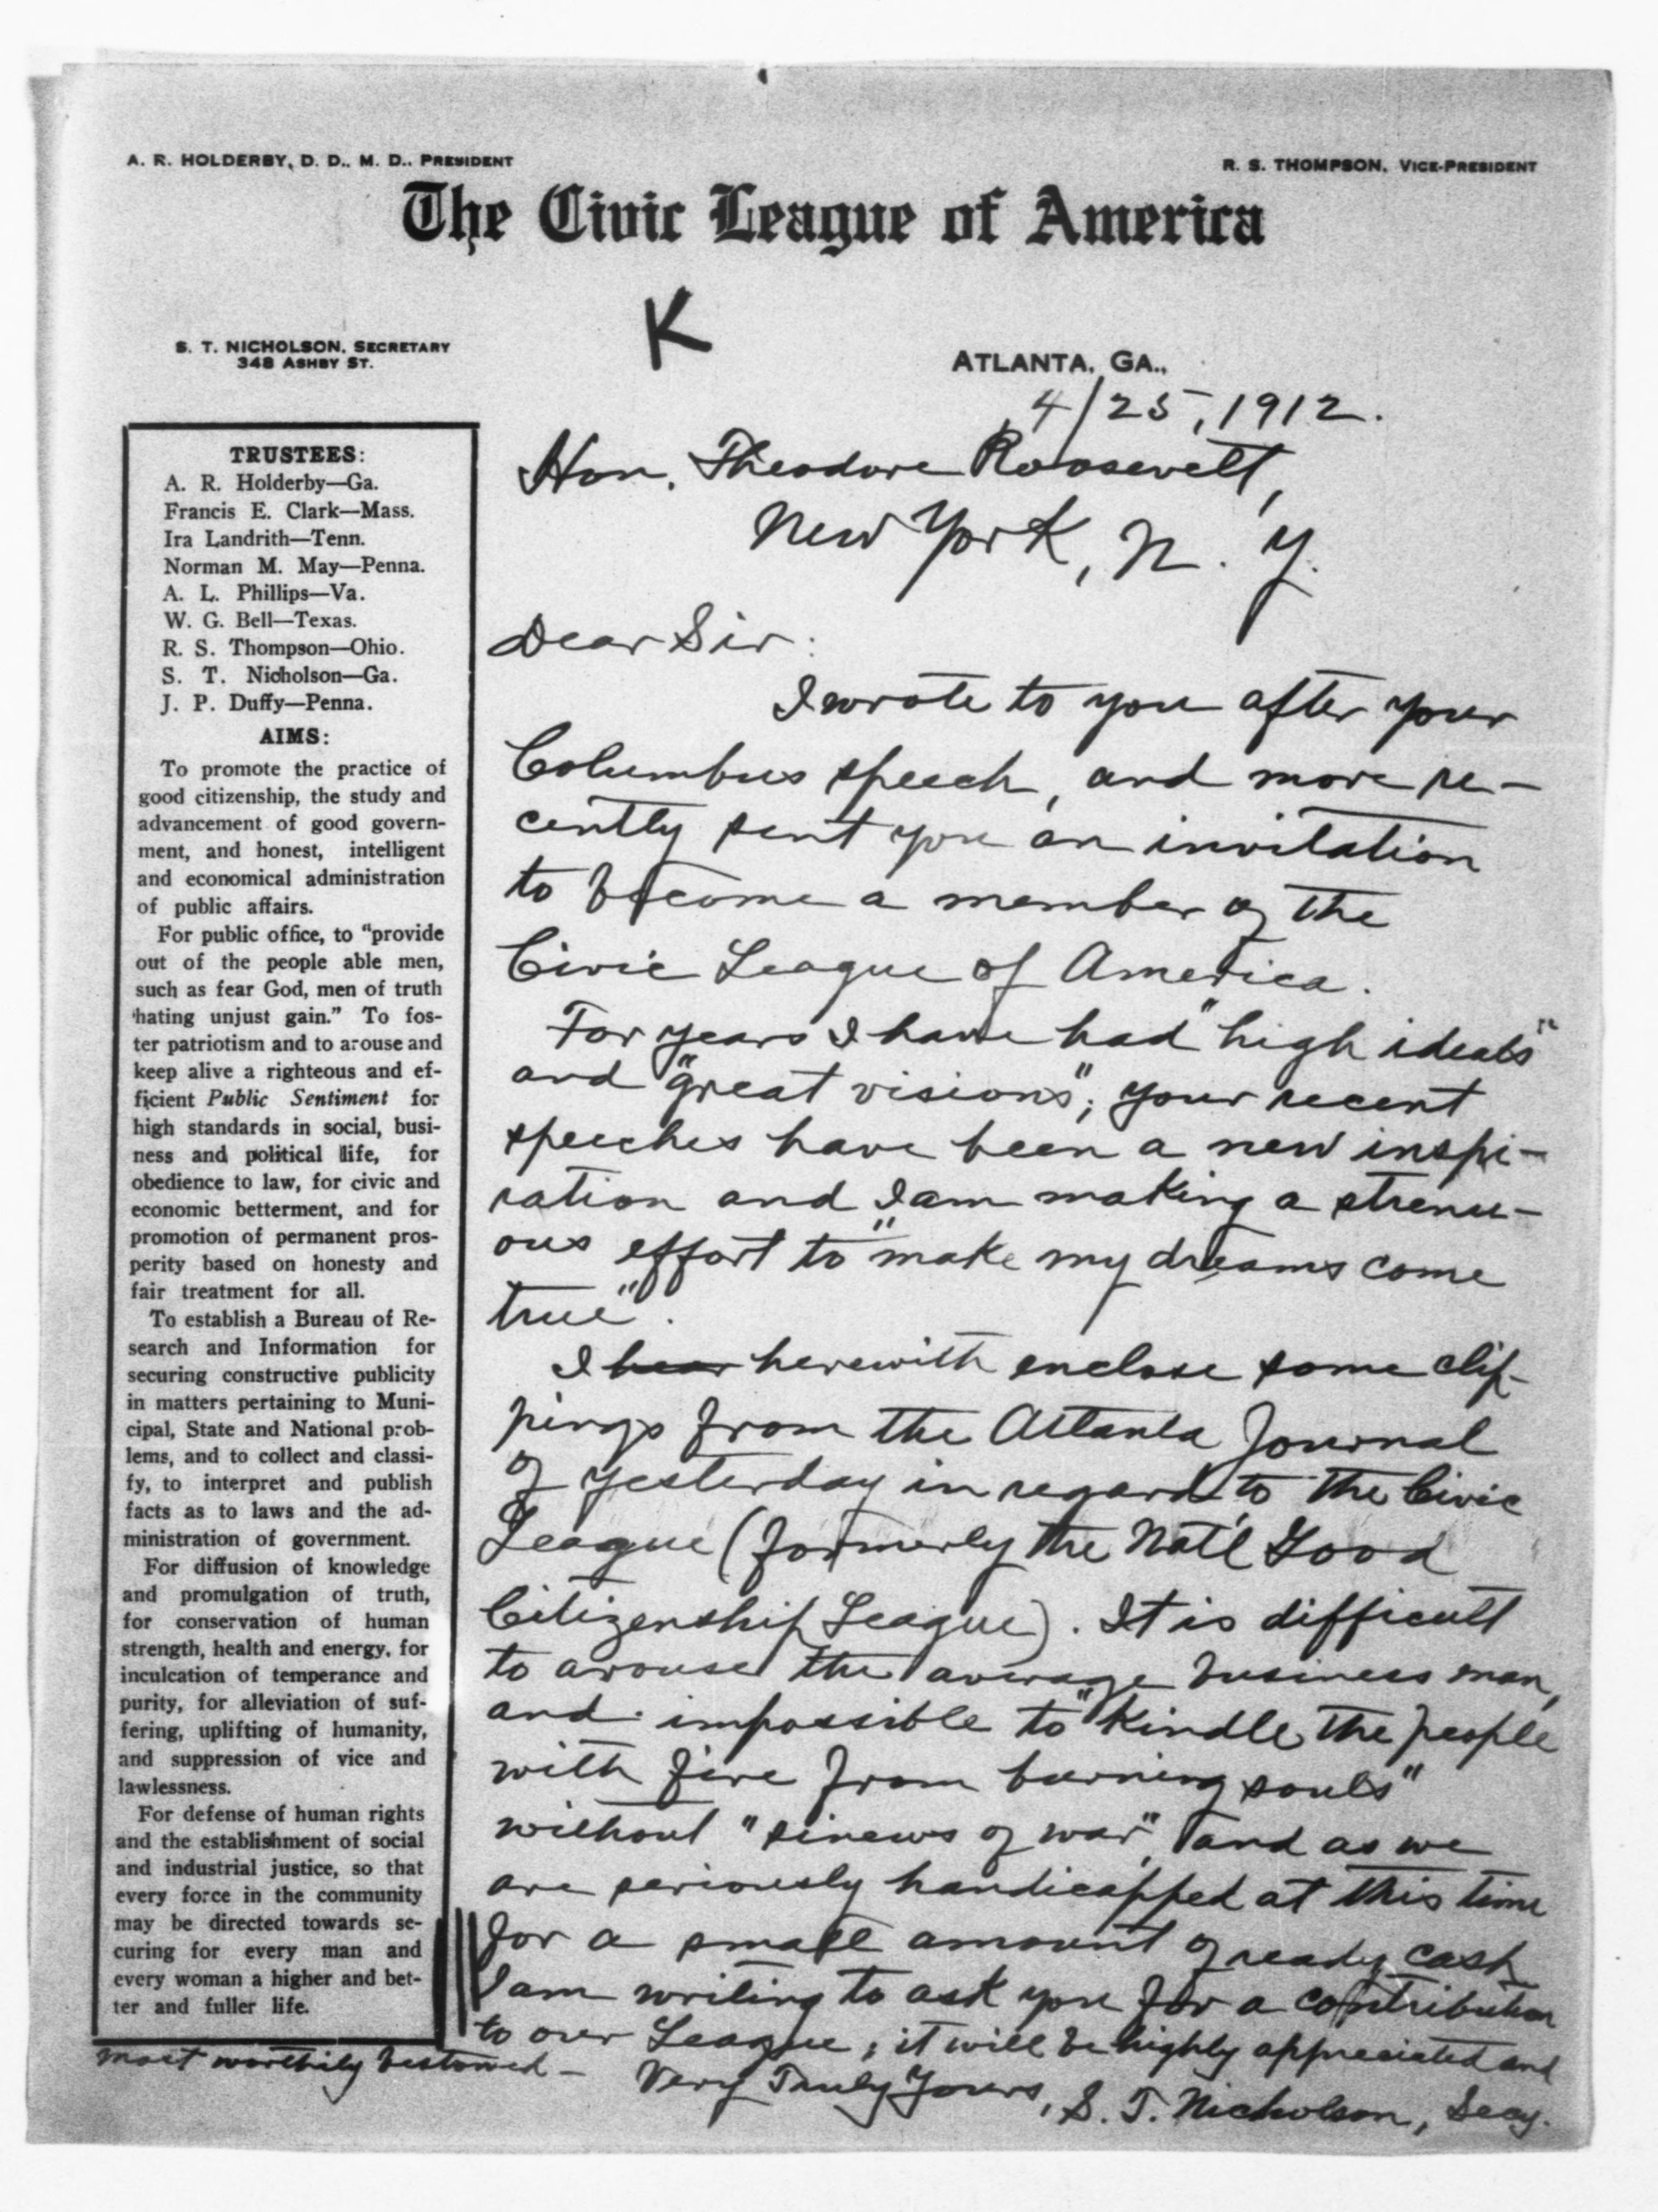 A. R. HOLDERBY, D. D., M. D., PRESIDENT
R. S. THOMPSON, VICE-PRESIDENT
The Civic League of America
K
S. T. NICHOLSON, SECRETARY
348 ASHBY ST.
ATLANTA, GA.,
4/25, 1912.
TRUSTEES:
A. R. Holderby—Ga.
Francis E. Clark—Mass.
Ira Landrith—Tenn.
Norman M. May—Penna.
A. L. Phillips—Va.
W. G. Bell—Texas.
R. S. Thompson—Ohio.
S. T. Nicholson—Ga.
J. P. Duffy—Penna.
AIMS:
To promote the practice of
good citizenship, the study and
advancement of good govern-
ment, and honest, intelligent
and economical administration
of public affairs.
For public office, to "provide
out of the people able men,
such as fear God, men of truth
'hating unjust gain." To fos-
ter patriotism and to arouse and
keep alive a righteous and ef-
ficient Public Sentiment for
high standards in social, busi-
ness and political life, for
obedience to law, for civic and
economic betterment, and for
promotion of permanent pros-
perity based on honesty and
fair treatment for all.
To establish a Bureau of Re-
search and Information for
securing constructive publicity
in matters pertaining to Muni-
cipal, State and National prob-
lems, and to collect and classi-
fy, to interpret and publish
facts as to laws and the ad-
ministration of government.
For diffusion of knowledge
and promulgation of truth,
for conservation of human
strength, health and energy, for
inculcation of temperance and
purity, for alleviation of suf-
fering, uplifting of humanity,
and suppression of vice and
lawlessness.
For defense of human rights
and the establishment of social
and industrial justice, so that
every force in the community
may be directed towards se-
curing for every man and
every woman a higher and bet-
ter and fuller life.
Hon. Theodore Roosevelt,
New York, N. Y.
Dear Sir:
I wrote to you after your
Columbus speech, and more re-
cently sent you an invitation
to become a member of the
Civic League of America.
For years I have had "high ideals"
and "great visions"; your recent
speeches have been a new inspi-
ration and I am making a strenu-
ous effort to "make my dreams come
true".
I hear herewith enclose some clip-
pings from the Atlanta Journal
of yesterday in regard to the Civic
League (formerly the Nat'l Good
Citizenship League). It is difficult
to arouse the average business man,
and impossible to "kindle the people
with fire from burning souls"
without "sinews of war", and as we
are seriously handicapped at this time
for a small amount of ready cash
I am writing to ask you for a contribution
to our League; it will be highly appreciated and
most worthily bestowed—
Very Truly Yours, S. T. Nicholson, Secy.